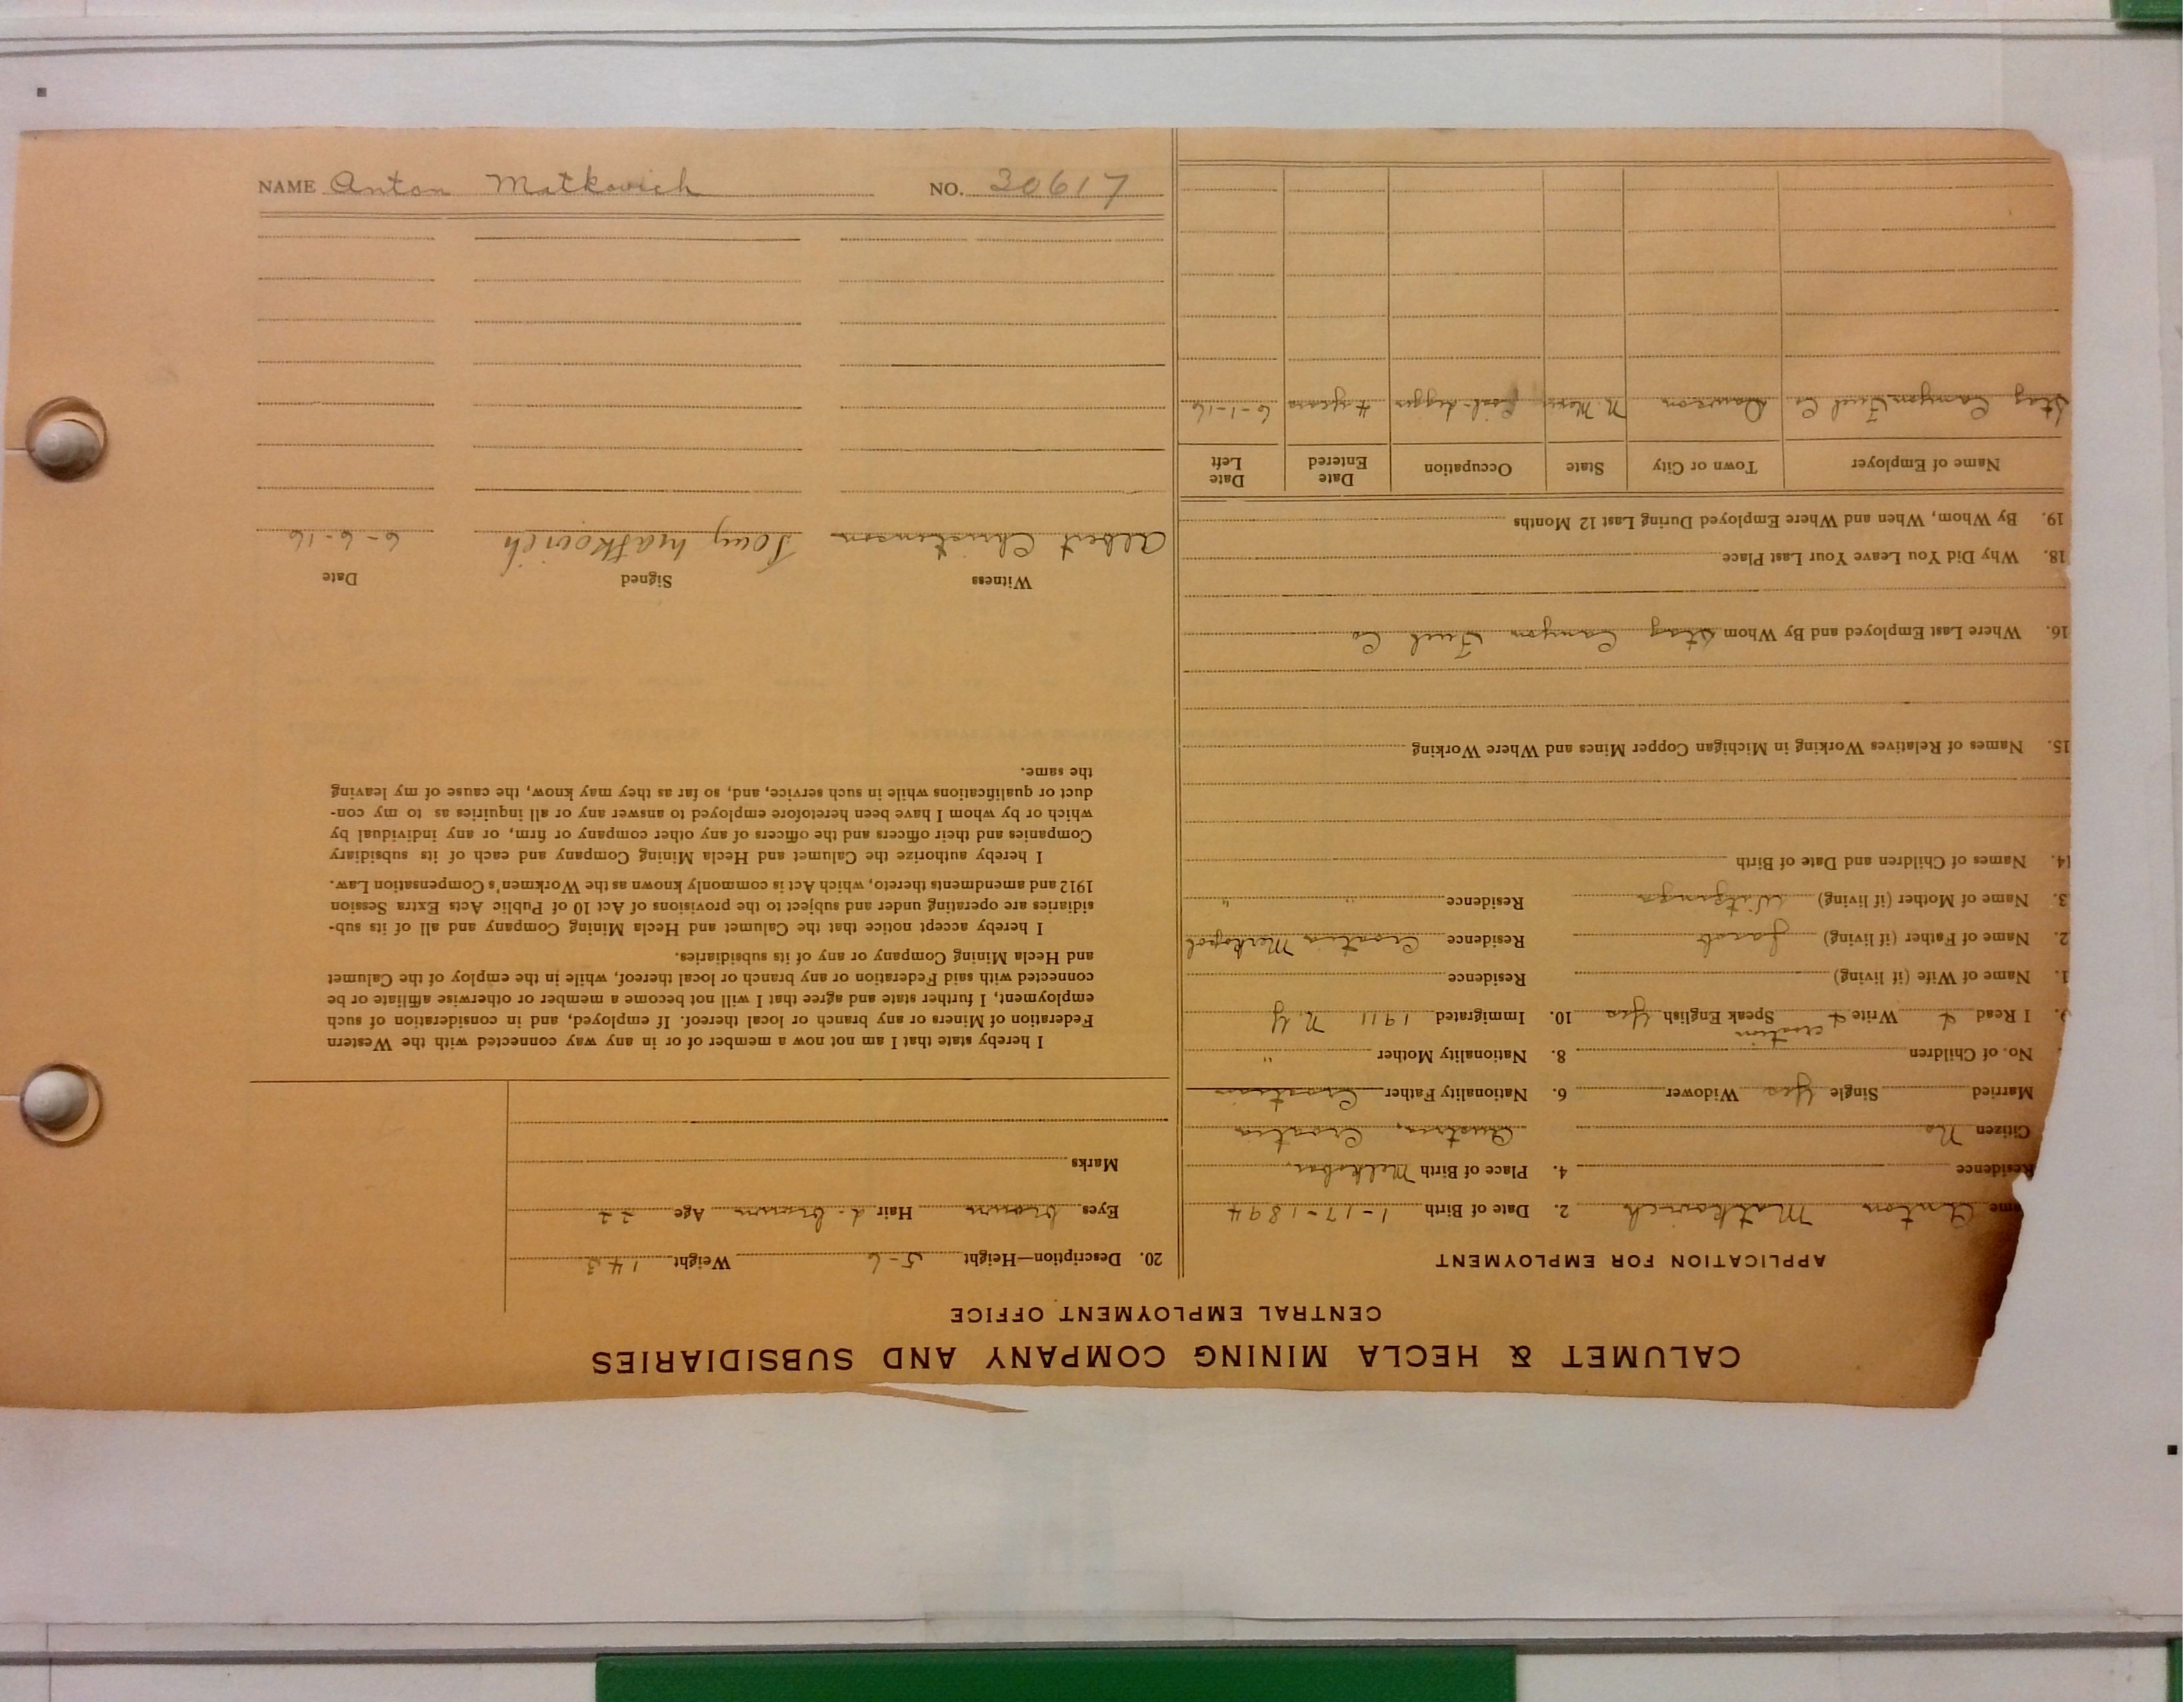 NAME Anton Matkovich NO. 30617
CALUMET & HECLA MINING COMPANY AND SUBSIDIARIES
CENTRAL EMPLOYMENT OFFICE
APPLICATION FOR EMPLOYMENT
ame Anton Matkovich 2. Date of Birth 1-17-1894
Residence 4. Place of Birth
Citizen No Austria, Croatia
Married Single Yes Widower 6. Nationality Father Croatian
No. of Children 8. Nationality Mother "
croatian
9. I Read + Write + Speak English Yes 10. Immigrated 1911 N.Y
1. Name of Wife (if living) Residence
2. Name of Father (if living) Jacob Residence Croatia Merkopol
3. Name of Mother (if living) Residence " "
14. Names of Children and Date of Birth
15. Names of Relatives Working in Michigan Copper Mines and Where Working
16. Where Last Employed and By Whom Stag Canyon Fuel Co
18. Why Did You Leave Your Last Place
19. By Whom, When and Where Employed During Last 12 Months
Name of Employer Town or City State Occupation Date Entered Date Left
Stag Canyon Fuel Co Dawson N. Mex Coal-digger 4 years 6-1-16
20. Description—Height 5-6 Weight 143
Eyes brown Hair d. brown Age 22
Marks
I hereby state that I am not now a member of or in any way connected with the Western
Federation of Miners or any branch or local thereof. If employed, and in consideration of such
employment, I further state and agree that I will not become a member or otherwise affiliate or be
connected with said Federation or any branch or local thereof, while in the employ of the Calumet
and Hecla Mining Company or any of its subsidiaries.
I hereby accept notice that the Calumet and Hecla Mining Company and all of its sub-
sidiaries are operating under and subject to the provisions of Act 10 of Public Acts Extra Session
1912 and amendments thereto, which Act is commonly known as the Workmen's Compensation Law.
I hereby authorize the Calumet and Hecla Mining Company and each of its subsidiary
Companies and their officers and the officers of any other company or firm, or any individual by
which or by whom I have been heretofore employed to answer any or all inquiries as to my con-
duct or qualifications while in such service, and, so far as they may know, the cause of my leaving
the same.
Witness Signed Date
Albert Christenson Tony Matkovich 6-6-16